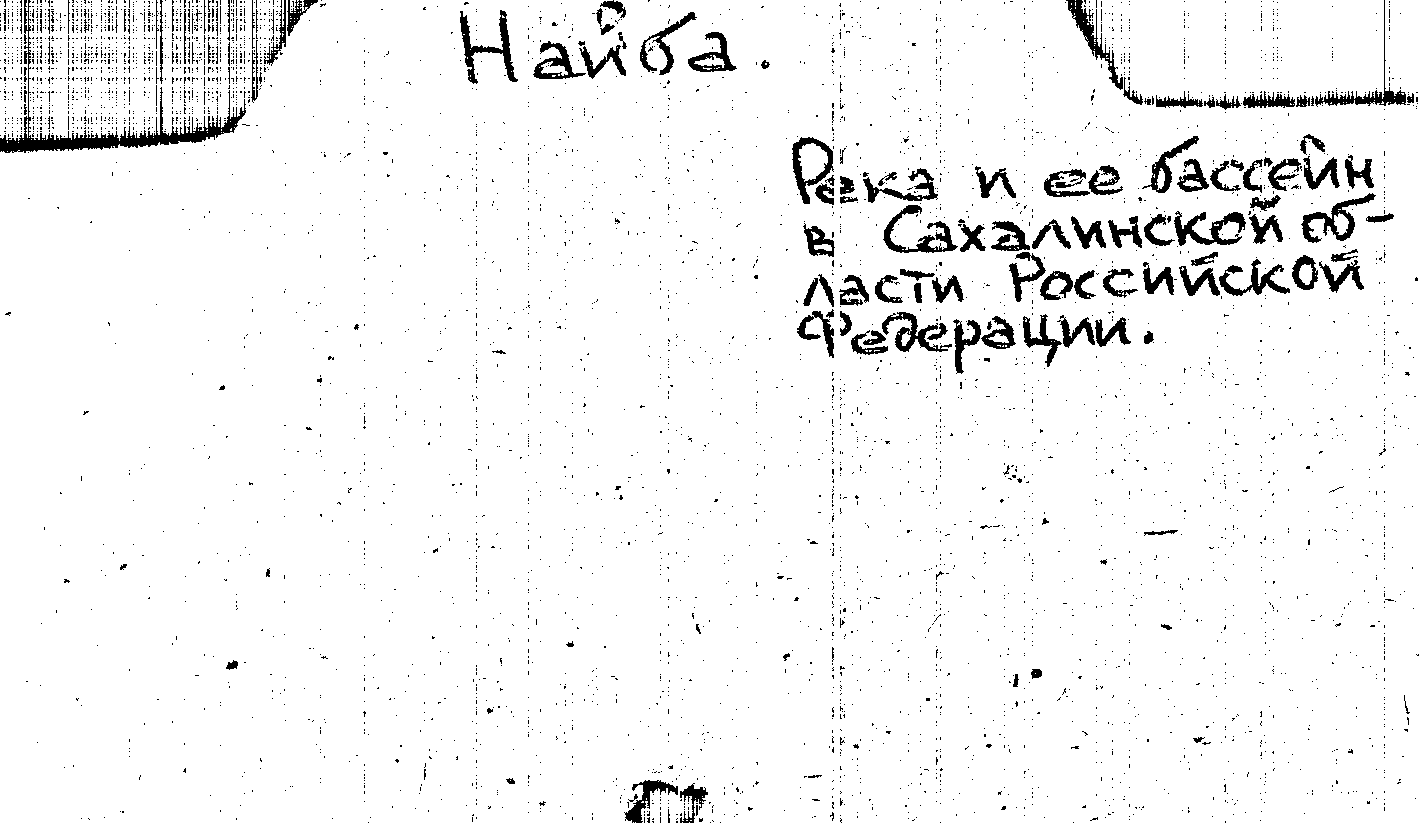 Найба.
Река и ее бассейн
в Сахалинской об-
ласти Российской
Федерации.